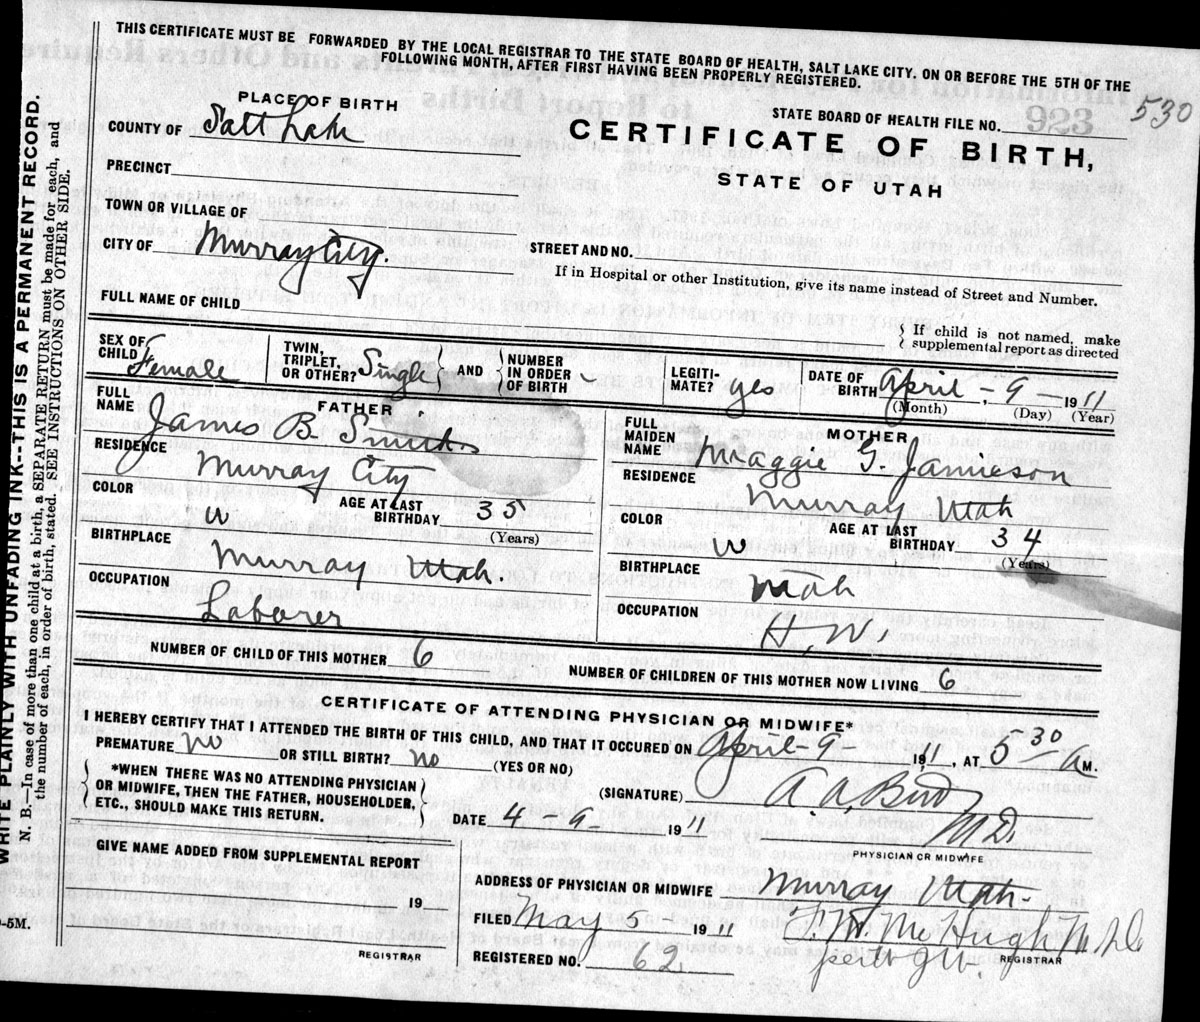 THIS CERTIFICATE MUST BE FORWARDED BY THE LOCAL REGISTRAR TO THE STATE BOARD OF HEALTH, SALT LAKE CITY, ON OR BEFORE THE 5TH OF THE
FOLLOWING MONTH, AFTER FIRST HAVING BEEN PROPERLY REGISTERED.
530
PLACE OF BIRTH
COUNTY OF Salt Lake
STATE BOARD OF HEALTH FILE NO. 923
CERTIFICATE OF BIRTH,
STATE OF UTAH
PRECINCT
TOWN OR VILLAGE OF
CITY OF Murray City.
STREET AND NO.
If in Hospital or other Institution, give its name instead of Street and Number.
FULL NAME OF CHILD
{ If child is not named, make
supplemental report as directed
SEX OF CHILD Female
TWIN, TRIPLET, OR OTHER? Single } AND { NUMBER IN ORDER OF BIRTH
LEGITIMATE? yes
DATE OF BIRTH April - 9 - 1911
(Month) (Day) (Year)
FATHER
FULL NAME James B. Smith
RESIDENCE Murray City
COLOR W
AGE AT LAST BIRTHDAY 35
(Years)
BIRTHPLACE Murray Utah.
OCCUPATION Laborer
MOTHER
FULL MAIDEN NAME Maggie G. Jamieson
RESIDENCE Murray Utah
COLOR W
AGE AT LAST BIRTHDAY 34
(Years)
BIRTHPLACE Utah
OCCUPATION H. W.
NUMBER OF CHILD OF THIS MOTHER 6
NUMBER OF CHILDREN OF THIS MOTHER NOW LIVING 6
CERTIFICATE OF ATTENDING PHYSICIAN OR MIDWIFE*
I HEREBY CERTIFY THAT I ATTENDED THE BIRTH OF THIS CHILD, AND THAT IT OCCURED ON April - 9 1911, AT 5 30 A M.
PREMATURE No OR STILL BIRTH? No (YES OR NO)
{ *WHEN THERE WAS NO ATTENDING PHYSICIAN
OR MIDWIFE, THEN THE FATHER, HOUSEHOLDER,
ETC., SHOULD MAKE THIS RETURN. }
(SIGNATURE) A A. Bird
M.D.
PHYSICIAN OR MIDWIFE
DATE 4 - 9 - 1911
GIVE NAME ADDED FROM SUPPLEMENTAL REPORT
19
REGISTRAR
ADDRESS OF PHYSICIAN OR MIDWIFE Murray Utah -
FILED May 5 1911
F. W. McHugh M.D.
REGISTERED NO. 62
REGISTRAR
WRITE PLAINLY WITH UNFADING INK--THIS IS A PERMANENT RECORD.
N. B.—In case of more than one child at a birth, a SEPARATE RETURN must be made for each, and
the number of each, in order of birth, stated. SEE INSTRUCTIONS ON OTHER SIDE.
-5M.